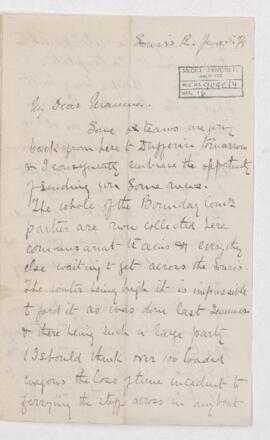 Souris R. June 5. 74
McGILL UNIVERSITY
ARCHIVES
ACC. NO.
REF. 16
My Dear Mamma.
Some ox teams are going
back from here to Dufferin tomorrow
& I consequently embrace the opportunity
of sending you some news.
The whole of the Boundary Comn
parties are now collected here
commissariat teams & everything
else waiting to get across the Souris.
The water being high it is impossible
to ford it as was done last Summer
& there being such a large party
(I should think over 100 loaded
wagons the loss of time incident to
ferrying the stuff across in any boat